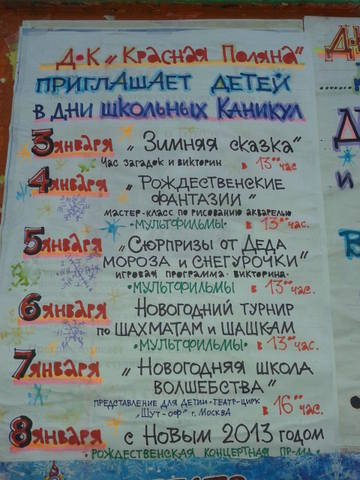 Д•К „Красная Поляна"
приглашает детей
в дни школьных каникул
3 января „Зимняя сказка"
Час загадок и викторин в 13⁰⁰ час
4 января „Рождественские
фантазии"
мастер-класс по рисованию акварелью
•мультфильмы• в 13⁰⁰ час.
5 января „Сюрпризы от Деда
Мороза и Снегурочки"
игровая программа-викторина•
•мультфильмы в 13⁰⁰ час.
6 января Новогодний турнир
по шахматам и шашкам
•мультфильмы• в 13⁰⁰ час
7 января „Новогодняя школа
волшебства"
представление для детей•театр-цирк
„Шут-оф" г. Москва в 16⁰⁰ час.
8 января с Новым 2013 годом
•Рождественская концертная пр-ма•